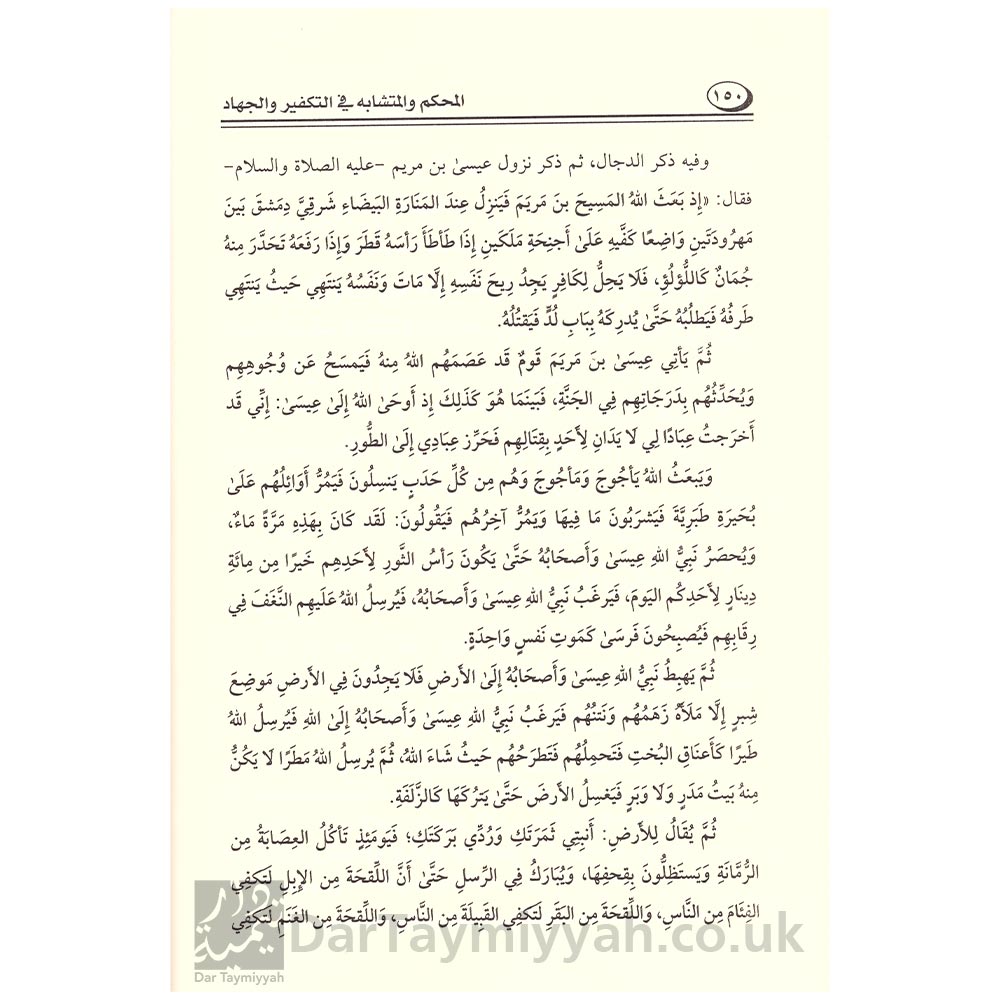 ١٥٠
المحكم والمتشابه في التكفير والجهاد
وفيه ذكر الدجال، ثم ذكر نزول عيسىٰ بن مريم -عليه الصلاة والسلام-
فقال: «إِذ بَعَثَ اللهُ المَسِيحَ بنَ مَريَمَ فَيَنزِلُ عِندَ المَنَارَةِ البَيضَاءِ شَرقِيَّ دِمَشقَ بَينَ
مَهرُودَتَينِ وَاضِعًا كَفَّيهِ عَلَىٰ أَجنِحَةِ مَلَكَينِ إِذَا طَأطَأَ رَأسَهُ قَطَرَ وَإِذَا رَفَعَهُ تَحَدَّرَ مِنهُ
جُمَانٌ كَاللُّؤلُؤِ، فَلَا يَحِلُّ لِكَافِرٍ يَجِدُ رِيحَ نَفَسِهِ إِلَّا مَاتَ وَنَفَسُهُ يَنتَهِي حَيثُ يَنتَهِي
طَرفُهُ فَيَطلُبُهُ حَتَّىٰ يُدرِكَهُ بِبَابِ لُدٍّ فَيَقتُلُهُ.
ثُمَّ يَأتِي عِيسَىٰ بنَ مَريَمَ قَومٌ قَد عَصَمَهُم اللهُ مِنهُ فَيَمسَحُ عَن وُجُوهِهِم
وَيُحَدِّثُهُم بِدَرَجَاتِهِم فِي الجَنَّةِ، فَبَينَمَا هُوَ كَذَلِكَ إِذ أَوحَىٰ اللهُ إِلَىٰ عِيسَىٰ: إِنِّي قَد
أَخرَجتُ عِبَادًا لِي لَا يَدَانِ لِأَحَدٍ بِقِتَالِهِم فَحَرِّز عِبَادِي إِلَىٰ الطُّورِ.
وَيَبعَثُ اللهُ يَأجُوجَ وَمَأجُوجَ وَهُم مِن كُلِّ حَدَبٍ يَنسِلُونَ فَيَمُرُّ أَوَائِلُهُم عَلَىٰ
بُحَيرَةِ طَبَرِيَّةَ فَيَشرَبُونَ مَا فِيهَا وَيَمُرُّ آخِرُهُم فَيَقُولُونَ: لَقَد كَانَ بِهَذِهِ مَرَّةً مَاءٌ،
وَيُحصَرُ نَبِيُّ اللهِ عِيسَىٰ وَأَصحَابُهُ حَتَّىٰ يَكُونَ رَأسُ الثَّورِ لِأَحَدِهِم خَيرًا مِن مِائَةِ
دِينَارٍ لِأَحَدِكُم اليَومَ، فَيَرغَبُ نَبِيُّ اللهِ عِيسَىٰ وَأَصحَابُهُ، فَيُرسِلُ اللهُ عَلَيهِم النَّغَفَ فِي
رِقَابِهِم فَيُصبِحُونَ فَرسَىٰ كَمَوتِ نَفسٍ وَاحِدَةٍ.
ثُمَّ يَهبِطُ نَبِيُّ اللهِ عِيسَىٰ وَأَصحَابُهُ إِلَىٰ الأَرضِ فَلَا يَجِدُونَ فِي الأَرضِ مَوضِعَ
شِبرٍ إِلَّا مَلَأَهُ زَهَمُهُم وَنَتنُهُم فَيَرغَبُ نَبِيُّ اللهِ عِيسَىٰ وَأَصحَابُهُ إِلَىٰ اللهِ فَيُرسِلُ اللهُ
طَيرًا كَأَعنَاقِ البُختِ فَتَحمِلُهُم فَتَطرَحُهُم حَيثُ شَاءَ اللهُ، ثُمَّ يُرسِلُ اللهُ مَطَرًا لَا يَكُنُّ
مِنهُ بَيتُ مَدَرٍ وَلَا وَبَرٍ فَيَغسِلُ الأَرضَ حَتَّىٰ يَترُكَهَا كَالزَّلَفَةِ.
ثُمَّ يُقَالُ لِلأَرضِ: أَنبِتِي ثَمَرَتَكِ وَرُدِّي بَرَكَتَكِ؛ فَيَومَئِذٍ تَأكُلُ العِصَابَةُ مِن
الرُّمَّانَةِ وَيَستَظِلُّونَ بِقِحفِهَا، وَيُبَارَكُ فِي الرِّسلِ حَتَّىٰ أَنَّ اللِّقحَةَ مِن الإِبِلِ لَتَكفِي
الفِئَامَ مِن النَّاسِ، وَاللِّقحَةَ مِن البَقَرِ لَتَكفِي القَبِيلَةَ مِن النَّاسِ، وَاللِّقحَةَ مِن الغَنَمِ لَتَكفِي
دار تيمية
Dar Taymiyyah
DarTaymiyyah.co.uk